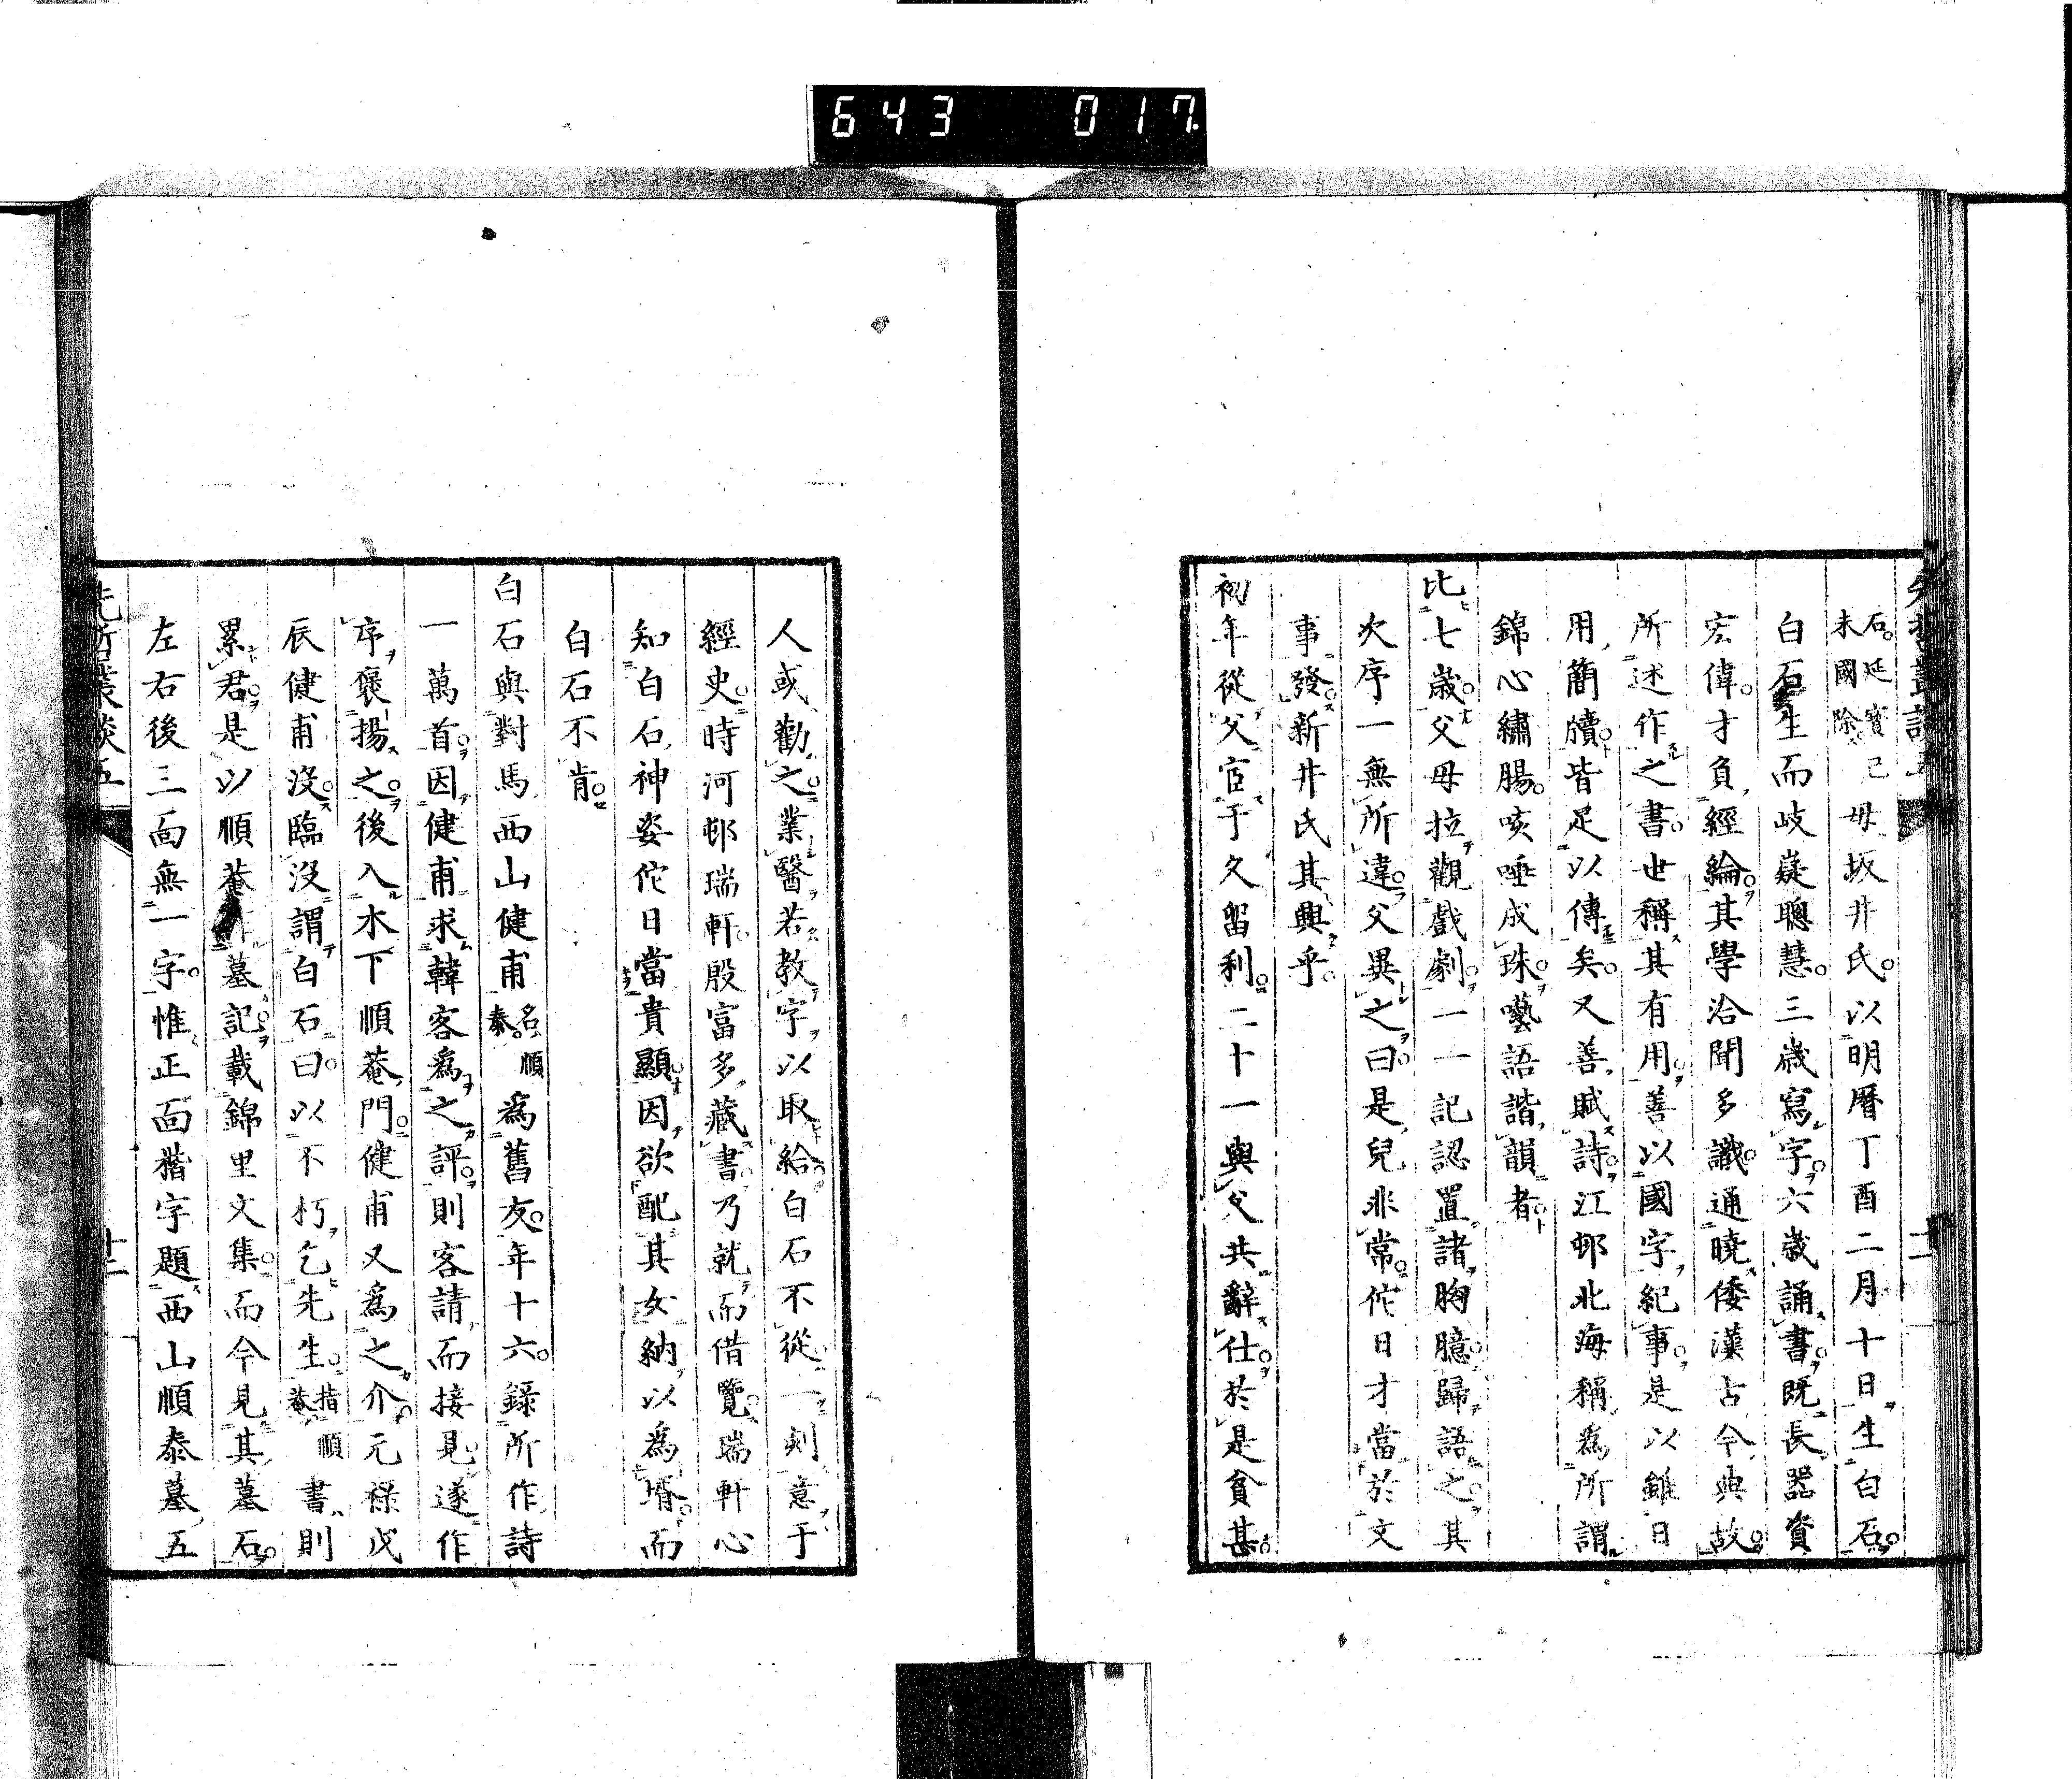 643 017
石。延寶己未國除。母坂井氏。以明曆丁酉二月十日生白石。
白石生而岐嶷聰慧。三歲寫字。六歲誦書。既長。器資
宏偉。才負經綸。其學洽聞多識。通曉倭漢古今典故。
所述作之書。世稱其有用。善以國字紀事。是以雖日
用簡牘。皆足以傳矣。又善賦詩。江邨北海稱爲所謂
錦心繡腸。咳唾成珠。囈語諧韻者。
比七歲。父母拉觀戲劇。一一記認置諸胸臆。歸語之。其
次序一無所違。父異之曰。是兒非常。佗日才當於文
事發。新井氏其興乎。
初年從父宦于久留利。二十一與父共辭仕。於是貧甚。
人或勸之業醫。若教字以取給。白石不從。一刻意于
經史。時河邨瑞軒。殷富多藏書。乃就而借覽。瑞軒心
知白石神姿佗日當貴顯。因欲配其女納以爲壻。而
白石不肯。
白石與對馬西山健甫名順泰。爲舊友。年十六。錄所作詩
一萬首。因健甫求韓客爲之評。則客請而接見。遂作
序褒揚之。後入木下順菴門。健甫又爲之介。元祿戊
辰健甫沒。臨沒謂白石曰。以不朽乞先生。指順菴書則
累君。是以順菴作墓記。載錦里文集。而今見其墓石。
左右後三面無一字。惟正面楷字題西山順泰墓五
先哲叢談五